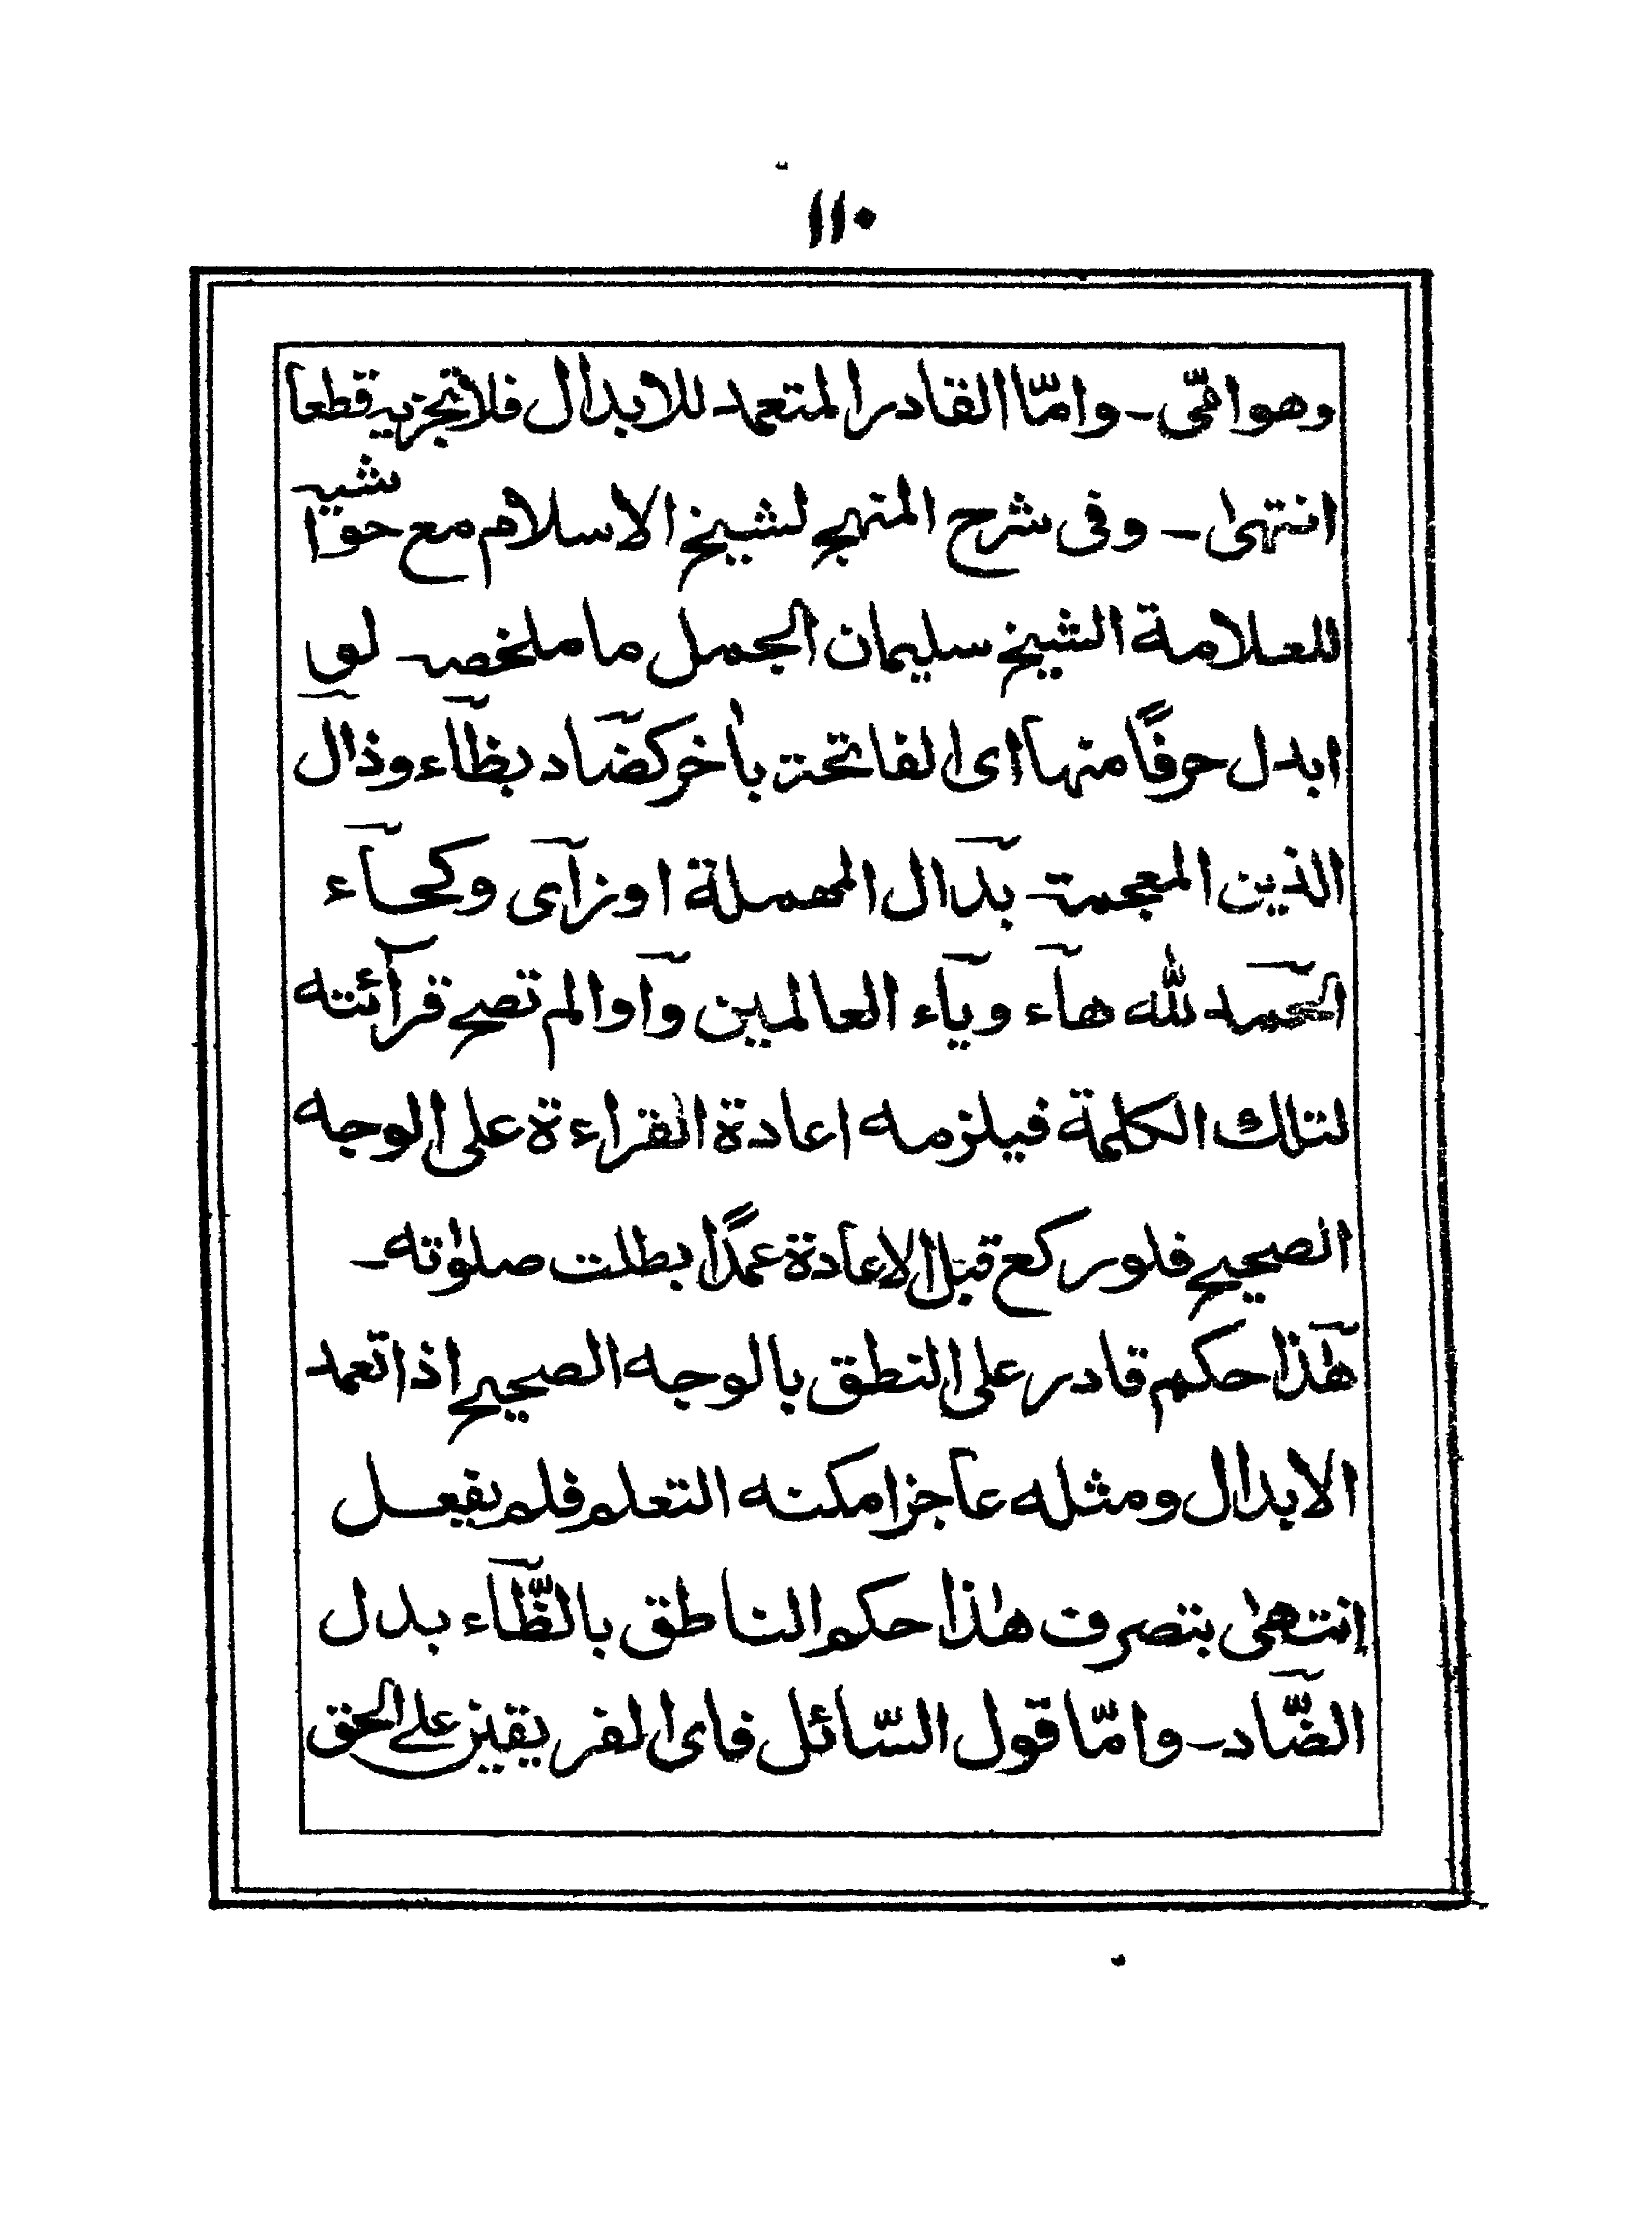 ١١٠
وهو امّى۔ وامّا القادر المتعمد للابدال فلا تجزيه قطعا
انتهىٰ۔ وفى شرح المنهج لشيخ الاسلام مع حواشيه
للعلامة الشيخ سليمان الجمل ما ملخصه لو
ابدل حرفًا منها اى الفاتحة بأخر كضآد بظآء وذآل
الذين المعجمة بدآل المهملة او زآى وكحآء
الحمد لله هآء ويآء العالمين وآوا لم تصح قرآئته
لتلك الكلمة فيلزمه اعادة القراءة على الوجه
الصحيح فلو ركع قبل الاعادة عمدًا بطلت صلوٰته۔
هٰذا حكم قادر على النطق بالوجه الصحيح اذا تعمد
الابدال ومثله عاجز امكنه التعلم فلم يفعل
انتهىٰ بتصرف هٰذا حكم الناطق بالظّآء بدل
الضّآد۔ وامّا قول السّائل فاى الفريقين على الحق